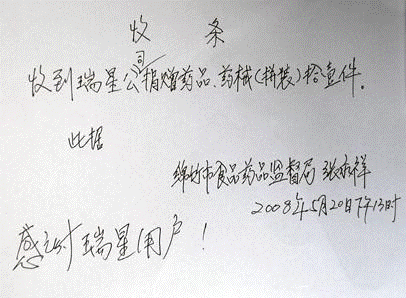 收条
收到瑞星公司捐赠药品、药械(拼装)拾壹件。
此据
绵竹市食品药品监督局 张
2008年5月20日下午13时
感谢瑞星用户！